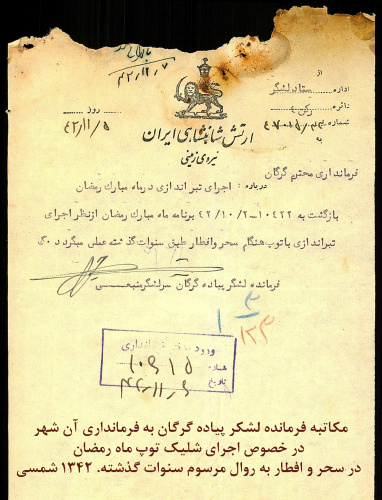 ۴۲/۱۲/۷
ارتش شاهنشاهی ایران
نیروی زمینی
از
اداره ستاد لشگر
دائره رکن ۳
شماره
به
روز ۴۲/۱۱/۵
فرمانداری محترم گرگان
درباره : اجرای تیراندازی درماه مبارک رمضان
بازگشت به ۱۰۴۲۲–۴۲/۱۰/۲ برنامه ماه مبارک رمضان ازنظر اجرای
تیراندازی باتوپ هنگام سحر وافطار طبق سنوات گذشته عملی میگردد
فرمانده لشگر پیاده گرگان سرلشگر
ورود دفتر فرمانداری
شماره ۱۰۹۱۵
تاریخ ۴۲/۱۱/۹
مکاتبه فرمانده لشکر پیاده گرگان به فرمانداری آن شهر
در خصوص اجرای شلیک توپ ماه رمضان
در سحر و افطار به روال مرسوم سنوات گذشته. ۱۳۴۲ شمسی